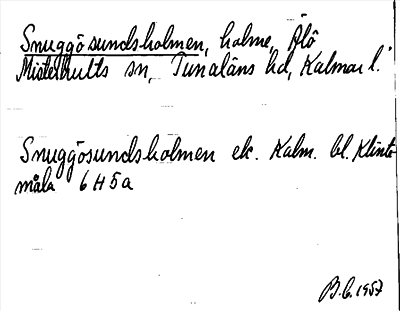 Snuggösundsholmen, holme, Älö
Misterhults sn, Tunaläns hd, Kalmar l.
Snuggösundsholmen ek. Kalm. bl. Klinte
måla 6H5a
B.C. 1957